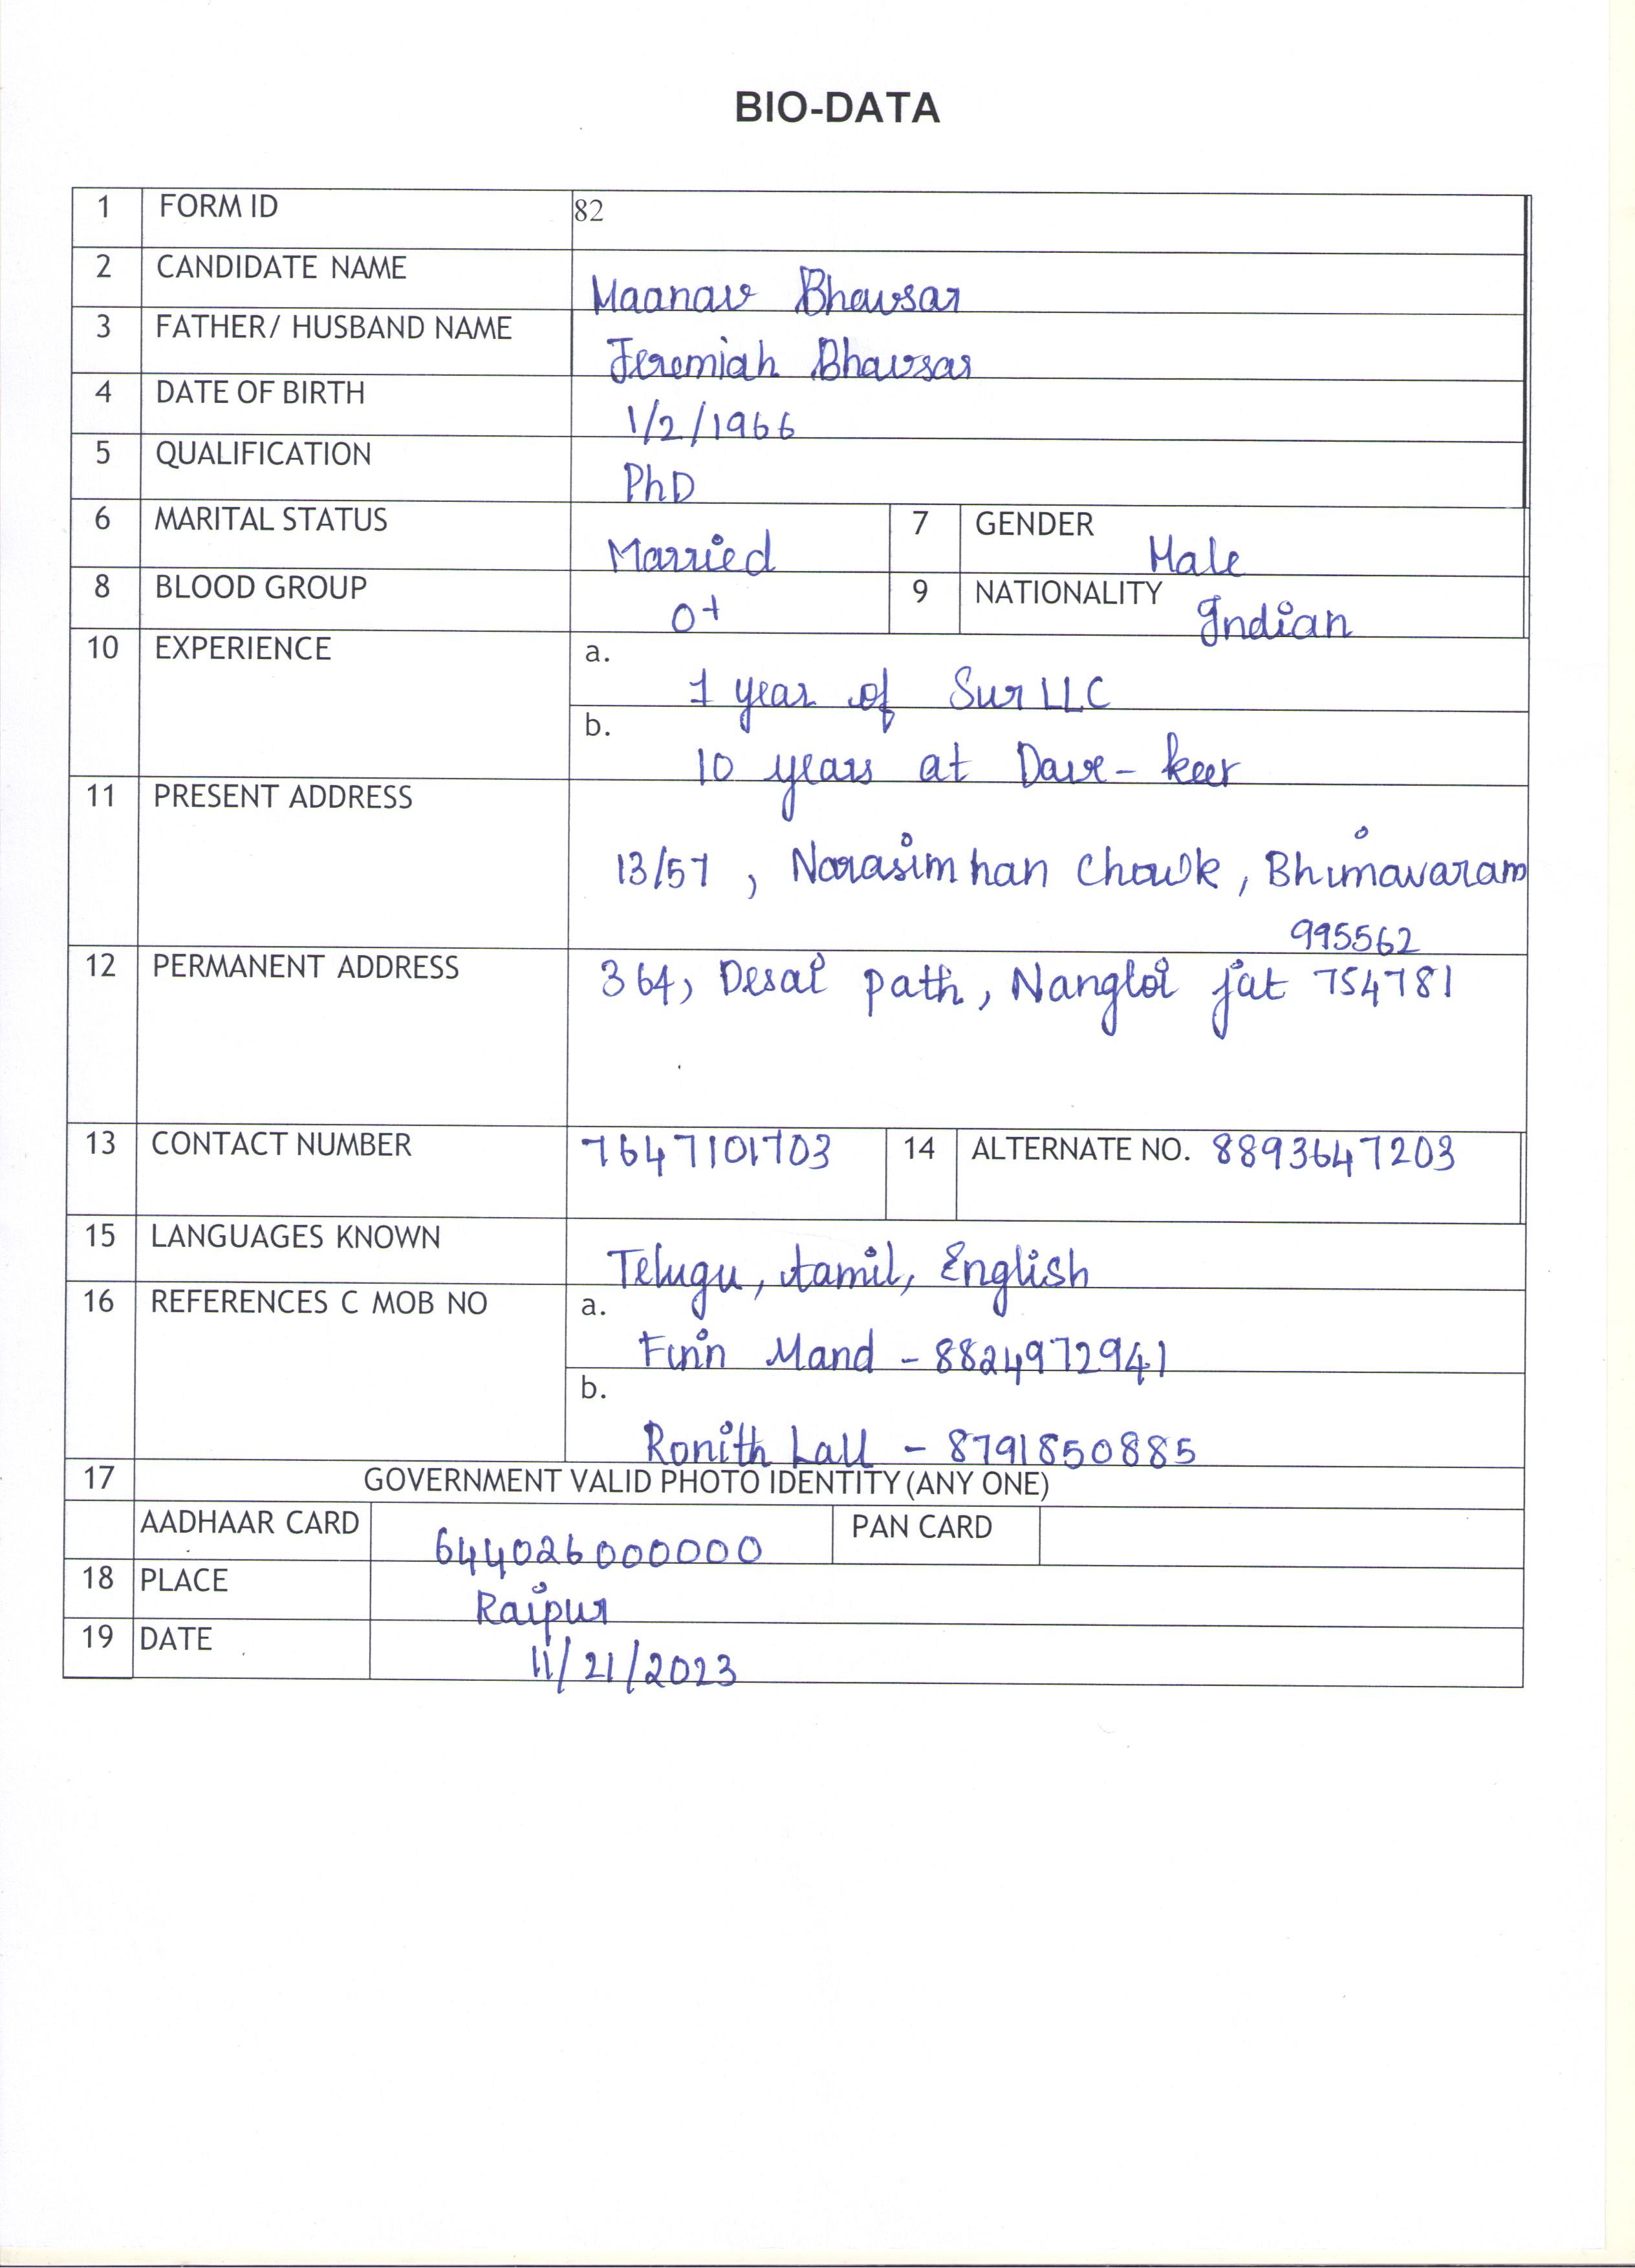 BIO-DATA
1 FORM ID 82
2 CANDIDATE NAME Maanav Bhavsar
3 FATHER/ HUSBAND NAME Jeremiah Bhavsar
4 DATE OF BIRTH 1/2/1966
5 QUALIFICATION PhD
6 MARITAL STATUS Married 7 GENDER Male
8 BLOOD GROUP O+ 9 NATIONALITY Indian
10 EXPERIENCE a. 1 year of Sur LLC
b. 10 years at Dave-keer
11 PRESENT ADDRESS
13/57, Narasimhan Chowk, Bhimavaram
995562
12 PERMANENT ADDRESS 364, Desai path, Nangloi jat 754781
13 CONTACT NUMBER 7647101703 14 ALTERNATE NO. 8893647203
15 LANGUAGES KNOWN Telugu, tamil, English
16 REFERENCES C MOB NO a. Finn Mand - 8824972941
b. Ronith Lall - 8791850885
17 GOVERNMENT VALID PHOTO IDENTITY (ANY ONE)
AADHAAR CARD 644026000000 PAN CARD
18 PLACE Raipur
19 DATE 11/21/2023